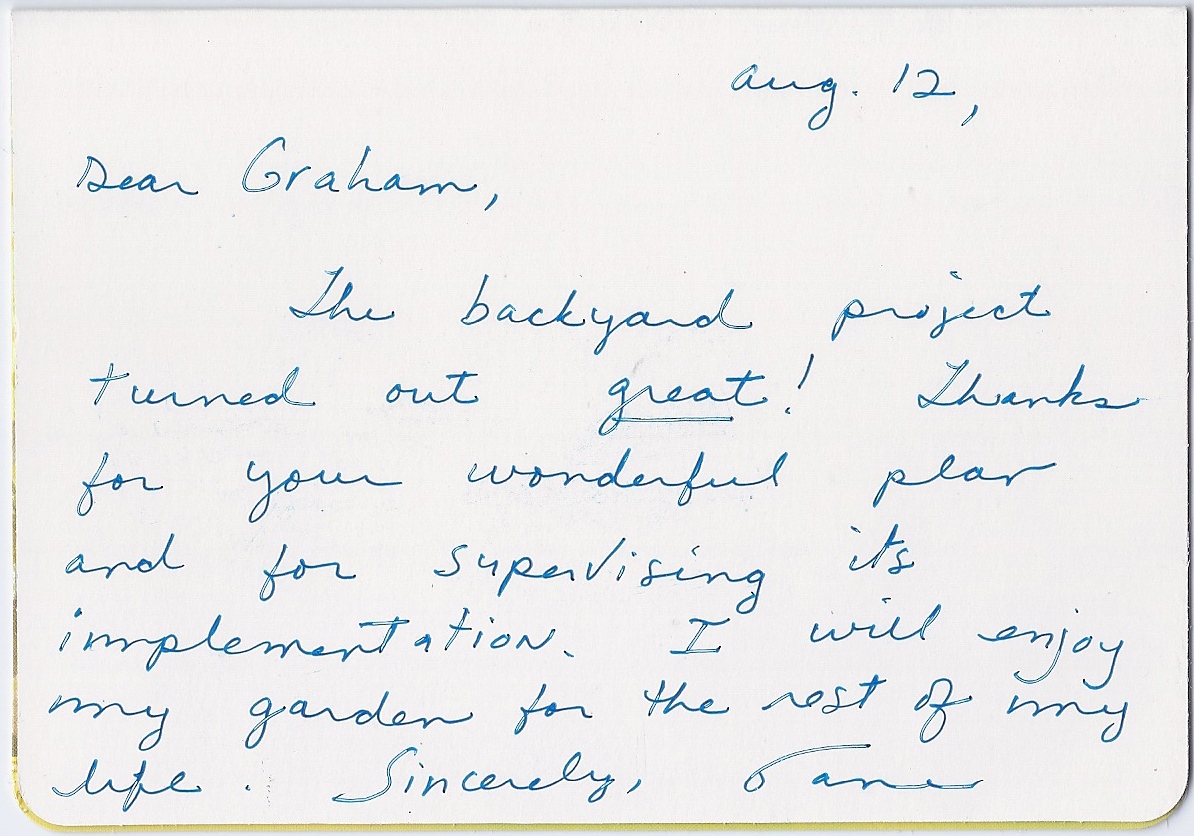 Aug. 12,
Dear Graham,
The backyard project
turned out great! Thanks
for your wonderful plan
and for supervising its
implementation. I will enjoy
my garden for the rest of my
life. Sincerely, Jane